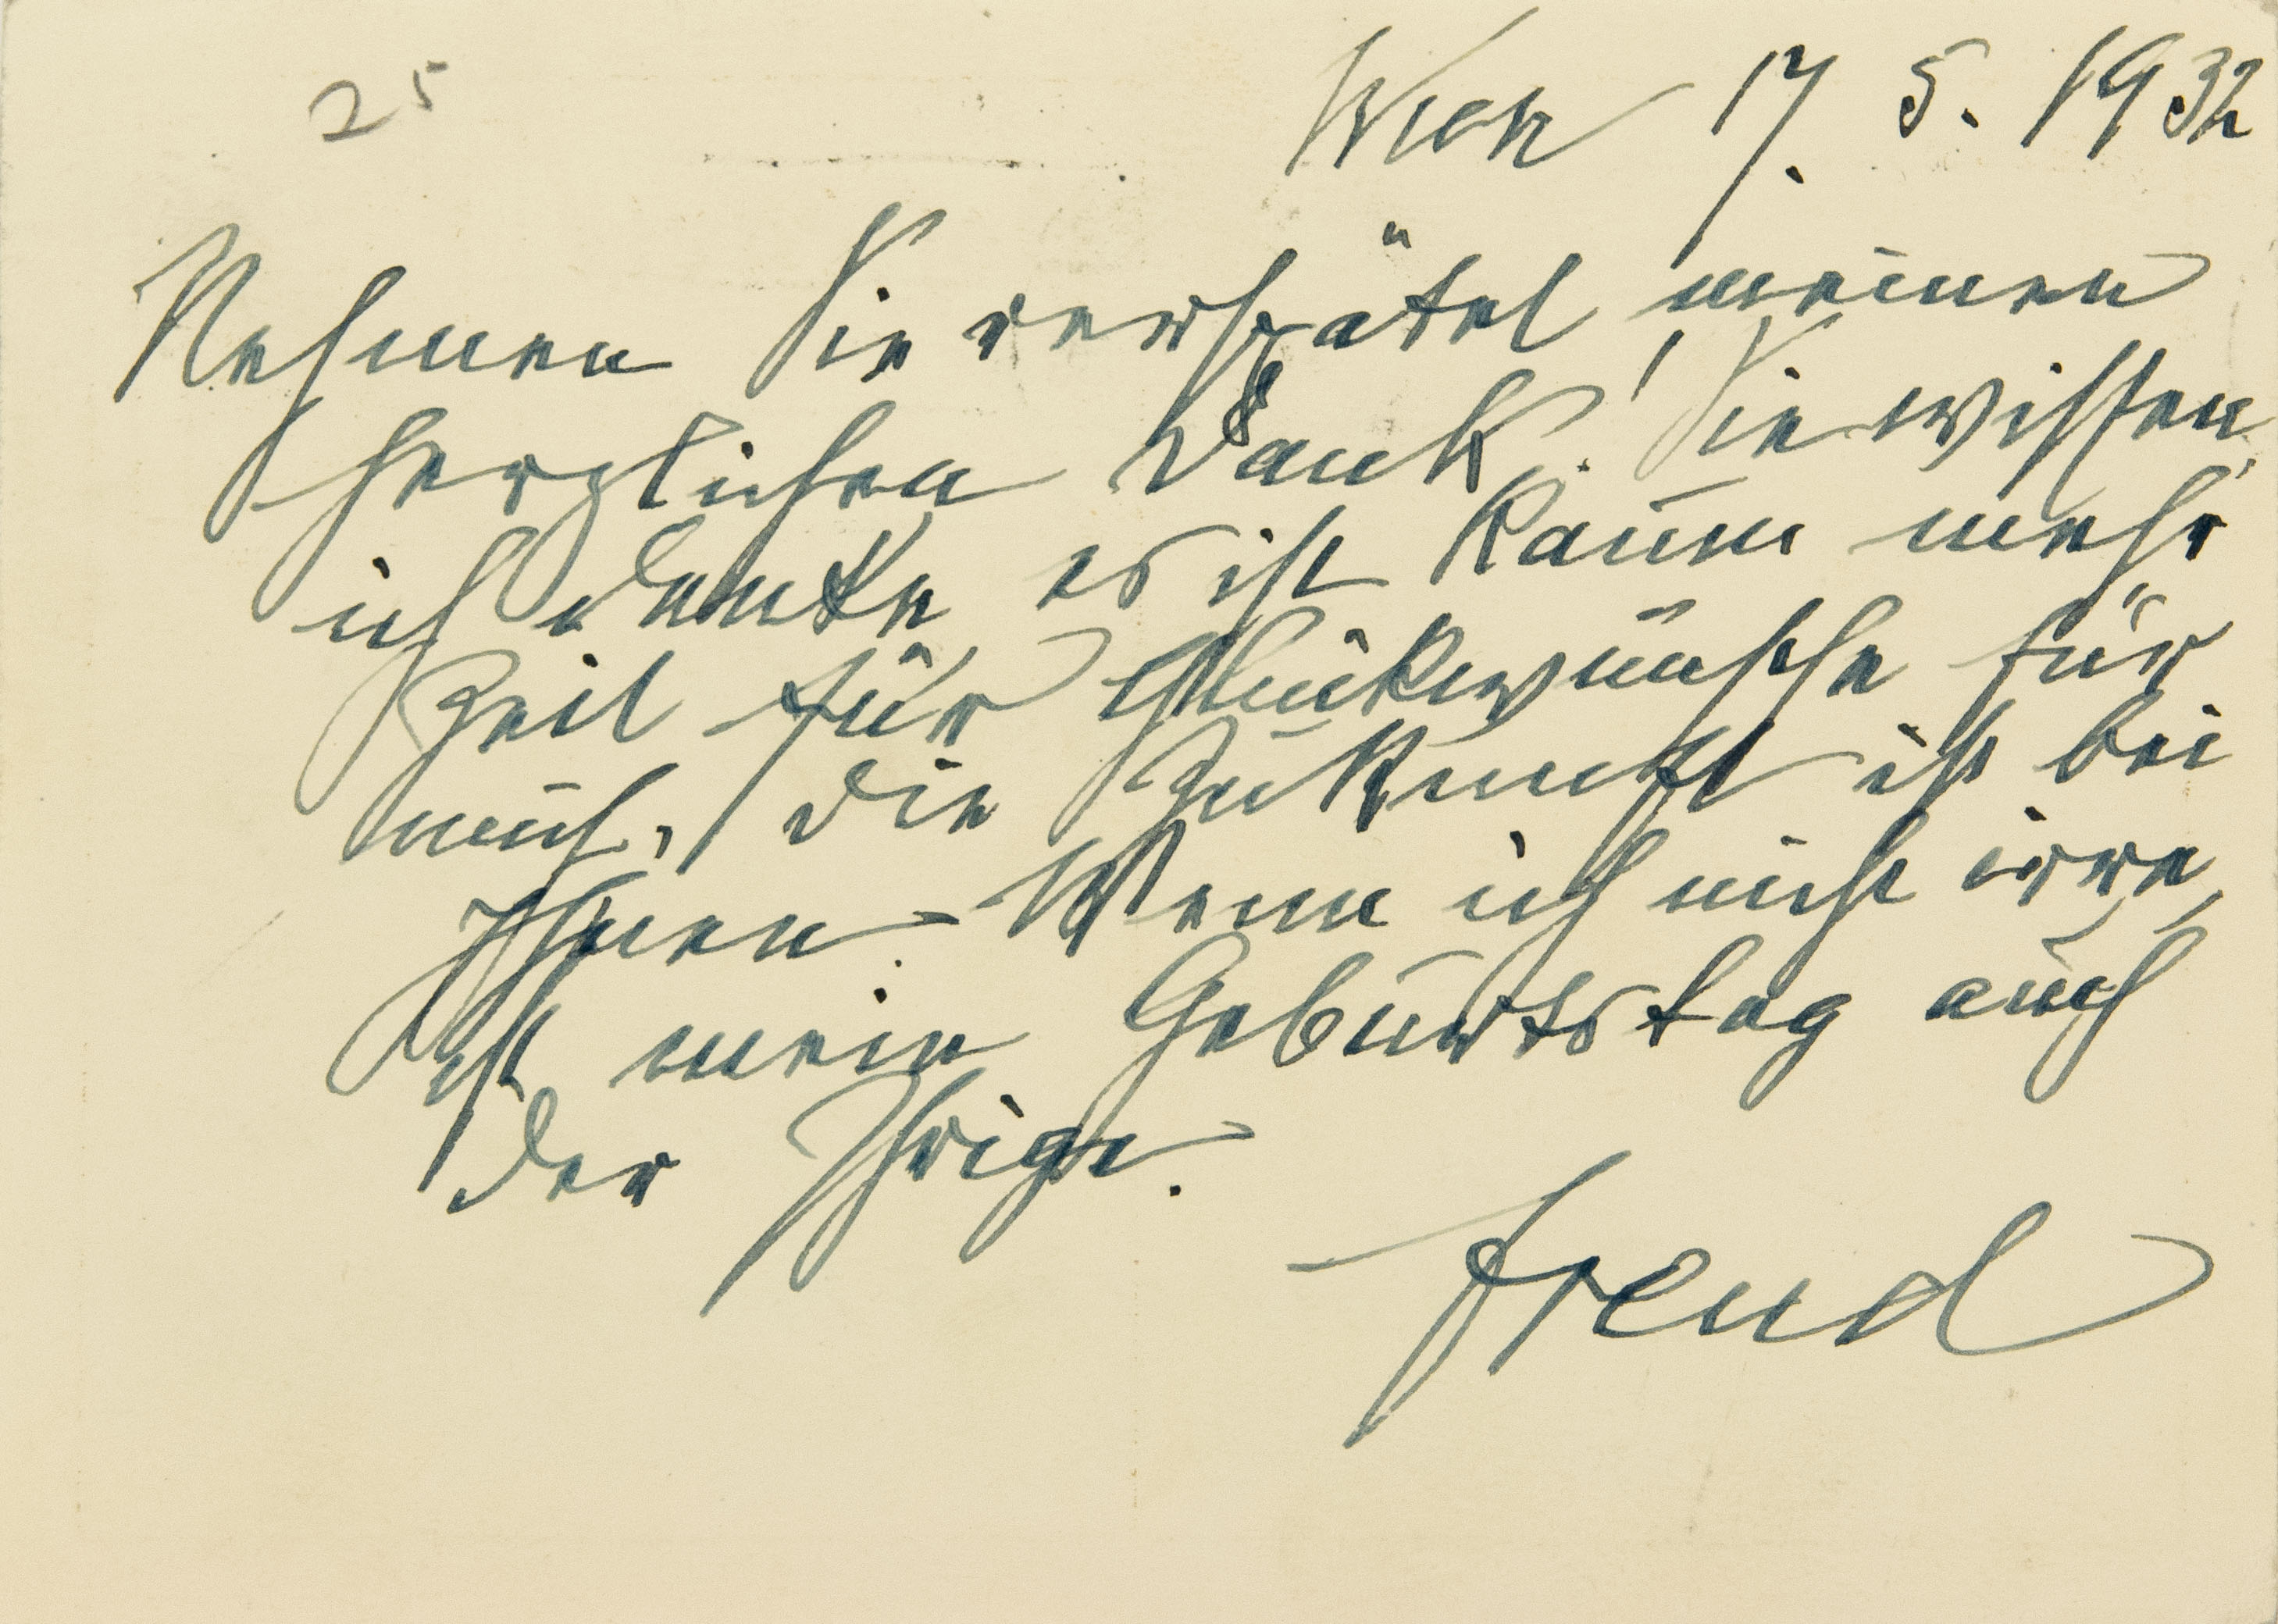 25
Wien 17. 5. 1932
Nehmen Sie verspätet meinen
herzlichen Dank! Sie wissen,
ich denke es ist kaum mehr
Zeit für Glückwünsche für
mich, die Zukunft ist bei
Ihnen. Wenn ich nicht irre,
ist mein Geburtstag auch
der Ihrige.
Freud